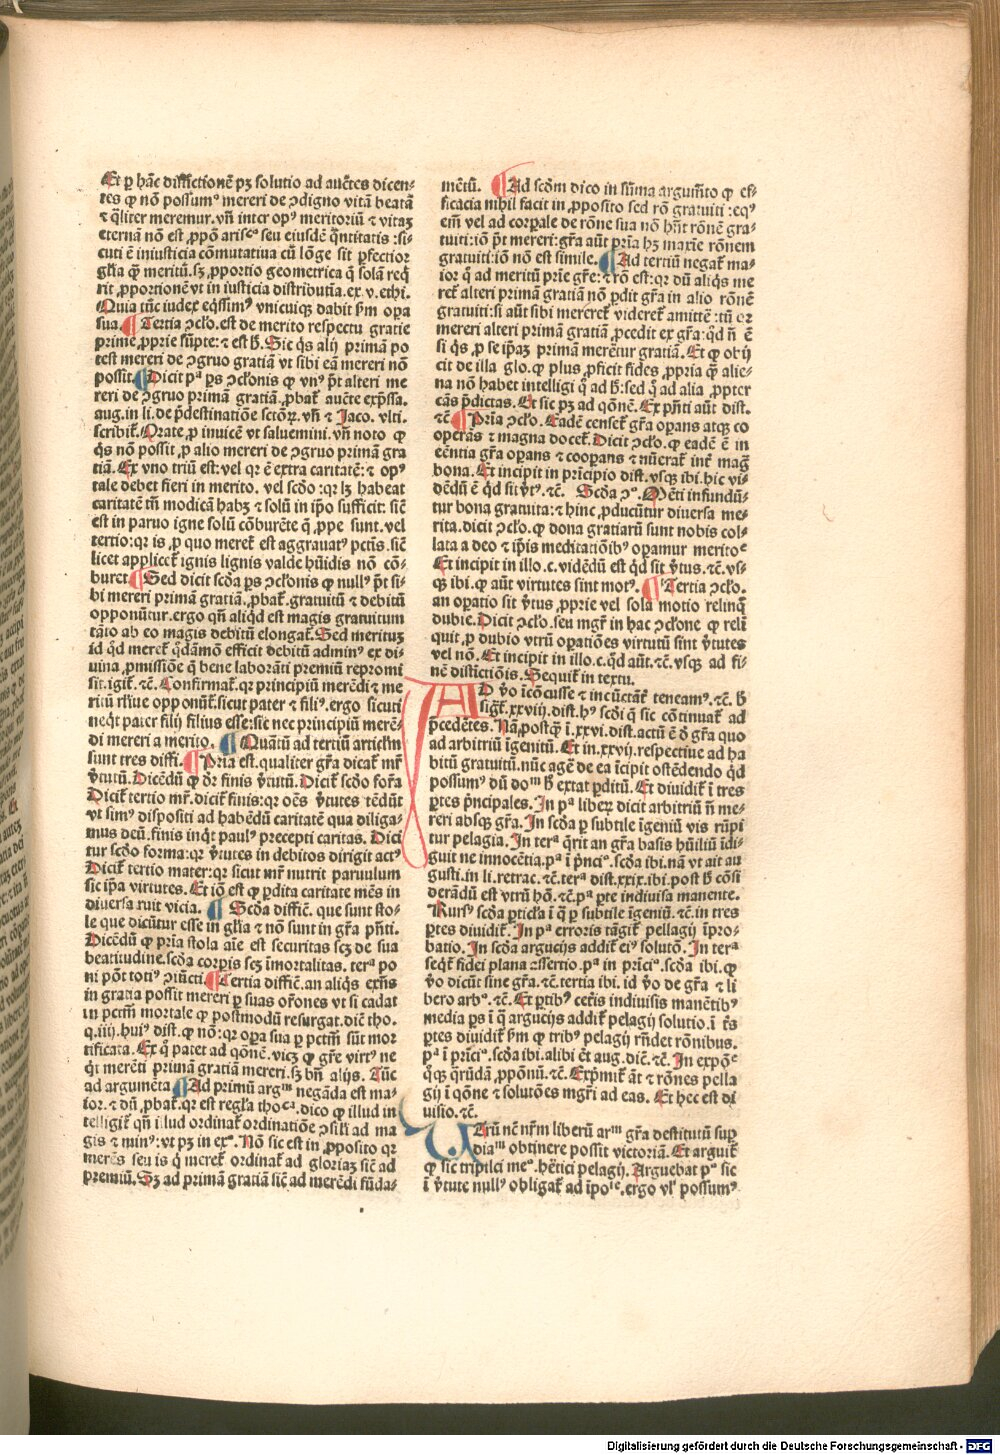 Et ꝑ hāc distīctionē pꝫ solutio ad auc̄tes dicen-
tes ꝙ nō possumꝰ mereri de ꝯdigno vitā beatā
⁊ q̄liter meremur. vn̄ inter opꝰ meritoriū ⁊ vitaꝫ
eternā nō est ꝓpō seu eiusdē q̄ntitatis :si-
cuti ē iniusticia cōmutatiua cū lōge sit ꝑfectior
gl̄ia ꝙ̄ meritū. sꝫ ꝓportio geometrica q̄ solā req̄
rit ꝓportionē vt in iusticia distributīa. ex .v. ethi.
Quia tūc iudex eq̄ssimꝰ vnicuiqꝫ dabit ẜm oꝑa
sua. ¶ Tertia ꝯclo. est de merito respectu gratie
prime ꝓprie sūpte: ⁊ est h̄. Sic q̄s alij primā po
test mereri de ꝯgruo gratiā vt sibi eā mereri nō
possit. ¶ Dicit pᵃ ꝑs ꝯclonis ꝙ vnꝰ pōt alteri me
reri de ꝯgruo primā gratiā. ꝓbat̄ auc̄te exp̄ssa.
aug. in li. de p̄destinatiōe sctōꝝ. vn̄ ⁊ Jaco. vlti.
scribit̄. Orate ꝓ inuicē vt saluemini. vn̄ noto ꝙ
q̄s nō possit ꝓ alio mereri de ꝯgruo primā gra
tiā. Ex vno triū est: vel qꝛ ē extra caritatē: ⁊ opꝰ
tale debet fieri in merito. vel scd̄o :qꝛ lꝫ habeat
caritatē tn̄ modicā habꝫ ⁊ solū in ip̄o sufficit: sic̄
est in paruo igne solū cōburēte q̄ ꝓpe sunt. vel
tertio: qꝛ is ꝓ quo meret̄ est aggrauatꝰ pctīs. sic̄
licet applicet̄ ignis lignis valde hūidis nō cō-
buret. ¶ Sed dicit scd̄a ꝑs ꝯclonis ꝙ nullꝰ pōt si-
bi mereri primā gratiā. ꝓbat̄. gratuitū ⁊ debitū
opponūtur. ergo qn̄ aliqd̄ est magis gratuitum
tāto ab eo magis debitū elongat̄. Sed merituꝫ
id qd̄ meret̄ q̄dāmō efficit debitū adminꝰ ex di-
uina ꝓmissiōe q̄ bene laborāti premiū repromi
sit. igit̄. ⁊c̄. Confirmat̄. qꝛ principiū merēdi ⁊ me
ritū opponūt̄. sicut pater ⁊ filiꝰ. ergo sicuti
neqt̄ pater filij filius esse: sic nec principiū merē-
di mereri a merito. ¶ Quātū ad tertiū articlm̄
sunt tres diffi. ¶ Prīa est. qualiter gr̄a dicat̄ mr̄
v̄tutū. Dicēdū ꝙ dr̄ finis v̄tutū. Dicit̄ scd̄o for̄a
Dicit̄ tertio mr̄. dicit̄ finis: qꝛ oēs v̄tutes tēdūt
vt simꝰ dispositi ad habēdū caritatē qua diliga-
mus deū. finis inq̄t paulꝰ precepti caritas. Dici
tur scd̄o forma: qꝛ v̄tutes in debitos dirigit actꝰ
Dicit̄ tertio mater: qꝛ sicut mr̄ nutrit paruulum
sic ip̄a virtutes. Et iō est ꝙ ꝑdita caritate mēs in
diuersa ruit vicia. ¶ Scd̄a diffic̄. que sunt sto-
le que dicūtur esse in gl̄ia ⁊ nō sunt in gr̄a pn̄ti.
Dicēdū ꝙ prīa stola aīe est securitas scꝫ de sua
beatitudine. scd̄a corꝑis scꝫ īmortalitas. terᵃ po
ni pōt totiꝰ ꝯiūcti. ¶ Tertia diffic̄. an aliq̄s exn̄s
in gratia possit mereri ꝑ suas orōnes vt si cadat
in pctm̄ mortale ꝙ postmodū resurgat. dic̄ tho.
q. iiij. huiꝰ dist. ꝙ nō: qꝛ oꝑa sua ꝑ pctm̄ sūt mor
tificata. Ex q̄ patet ad qōnē. vicꝫ ꝙ gr̄e virtꝰ ne
q̄t merēti primā gratiā mereri. sꝫ bn̄ alijs. Tūc
ad argumēta ¶ Ad primū argᵐ negāda est ma-
ior. ⁊ dū ꝓbat̄. qꝛ est regl̄a thoᶜᵃ. dico ꝙ illud in
telligit̄ qn̄ illud ordinat̄ ordinatiōe ꝯsili ad ma
gis ⁊ minꝰ: vt pꝫ in exᵒ. Nō sic est in ꝓposito qꝛ
merēs seu is q̄ meret̄ ordinat̄ ad gloriaꝫ sic̄ ad
premiū. Sꝫ ad primā gratiā sic̄ ad merēdi fūda-
mētū. ¶ Ad scd̄m dico in sūma argum̄to ꝙ ef-
ficacia nihil facit in ꝓposito sed rō gratuiti :eqꝰ
em̄ vel ad corꝑale de rōne sua nō hn̄t rōnē gra-
tuiti: iō pn̄t mereri: gr̄a aūt prīa hꝫ maxīe rōnem
gratuiti: iō nō est simile. ¶ Ad tertiū negat̄ ma-
ior q̄ ad meritū prīe gr̄e: ⁊ rō est: qꝛ dū aliq̄s me
ret̄ alteri primā gratiā nō ꝑdit gr̄a in alio rōnē
gratuiti: si aūt sibi mereret̄ videret̄ amitte: tū qꝛ
mereri alteri primā gratiā ꝓcedit ex gr̄a: qd̄ n̄ ē
si q̄s ꝓ se ip̄aꝫ primā merētur gratiā. Et ꝙ obij
cit de illa glo. ꝙ plus ꝓficit fides ꝓpria ꝙ̄ alie-
na nō habet intelligi q̄ ad h̄: sed q̄ ad alia ꝓpter
cās p̄dictas. Et sic pꝫ ad qōnē. Ex pn̄ti aūt dist.
⁊c̄ ¶ Prīa ꝯclo. Eadē censet̄ gr̄a oꝑans atqꝫ co
oꝑans ⁊ magna docet̄. Dicit ꝯclo. ꝙ eadē ē in
eēntia gr̄a oꝑans ⁊ cooꝑans ⁊ nūerat̄ int̄ maḡ
bona. Et incipit in prīcipio dist. vsqꝫ ibi. hic vi-
dēdū ē qd̄ sit v̄tꝰ. ⁊c̄. Scd̄a ꝯᵒ. Mēti infundū-
tur bona gratuita: ⁊ hinc ꝓducūtur diuersa me-
rita. dicit ꝯclo. ꝙ dona gratiarū sunt nobis col-
lata a deo ⁊ ip̄is meditatiōibꝰ oꝑamur meritoᵉ
Et incipit in illo. c. vidēdū est qd̄ sit v̄tus. ⁊c̄. vs-
qꝫ ibi. ꝙ aūt virtutes sint motꝰ. ¶ Tertia ꝯclo.
an oꝑatio sit v̄tus ꝓprie vel sola motio relinq̄
dubie. Dicit ꝯclo. seu mgr̄ in hac ꝯclone ꝙ reli
quit ꝓ dubio vtrū oꝑatiōes virtutū sint v̄tutes
vel nō. Et incipit in illo. c. qd̄ aūt. ⁊c̄. vsqꝫ ad fi-
nē distictiōis. Sequit̄ in textu.
AD v̄o īcōcusse ⁊ incūctāt̄ teneamꝰ. ⁊c̄. h̄
sigt̄. xxviij. dist. hꝰ scd̄i q̄ sic cōtinuat̄ ad
p̄cedētes. Nā postqꝫ̄ ī. xxvi. dist. actū ē d̄ gr̄a quo
ad arbitriū īgenitū. Et in. xxvij. respectiue ad ha
bitū gratuitū. nūc agē de ea īcipit ostēdendo qd̄
possumꝰ dū doᵐ h̄ extat ꝑditū. Et diuidit̄ ī tres
ꝑtes p̄ncipales. In pᵃ liberꝫ dicit arbitriū n̄ me-
reri absqꝫ gr̄a. In scd̄a ꝑ subtile īgeniū vis rūpi
tur pelagia. In terᵃ q̄rit an gr̄a basis hūiliū īdi-
guit ne innocētia. pᵃ ī p̄nciᵒ. scd̄a ibi. nā vt ait au
gusti. in li. retrac. ⁊c̄. terᵃ dist. xxix. ibi. post h̄ cōsi
derādū est vtrū hō. ⁊c̄. pᵃ ꝑte indiuisa manente.
Rursꝰ scd̄a ꝑticl̄a ī q̄ ꝑ subtile īgeniū. ⁊c̄. in tres
ꝑtes diuidit̄. In pᵃ erroris tāgit̄ pellagij īpro-
batio. In scd̄a argucijs addit̄ eiꝰ solutō. In terᵃ
seqt̄ fidei plana assertio. pᵃ in prīciᵒ. scd̄a ibi. ꝙ
v̄o dicūt sine gr̄a. ⁊c̄. tertia ibi. id v̄o de gr̄a ⁊ li
bero arbᵒ. ⁊c̄. Et ꝑtibꝰ cet̄is indiuisis manētibꝰ
media ꝑs ī q̄ argucijs addit̄ pelagij solutio. ī tr̄s
ꝑtes diuidit̄ ẜm ꝙ tribꝰ pelagij rn̄det rōnibus.
pᵃ ī prīciᵒ. scd̄a ibi. alibi ēt aug. dic̄. ⁊c̄. In expōᵉ
q̄qꝫ q̄rūdā ꝓpōnū. ⁊c̄. Exp̄mit̄ āt ⁊ rōnes pella
gij ī qōne ⁊ solutōes mgr̄i ad eas. Et hec est di
uisio. ⁊c̄.
UTrū nē nr̄m liberū arᵐ gr̄a destitutū suꝑ
diaᵐ obtinere possit victoriā. Et arguit̄
ꝙ sic tripl̄ci meᵒ. hētici pelagij. Arguebat pᵒ sic
ī v̄tute nullꝰ obligat̄ ad īpoˡᵉ. ergo vl̓ possumꝰ
Digitalisierung gefördert durch die Deutsche Forschungsgemeinschaft - DFG